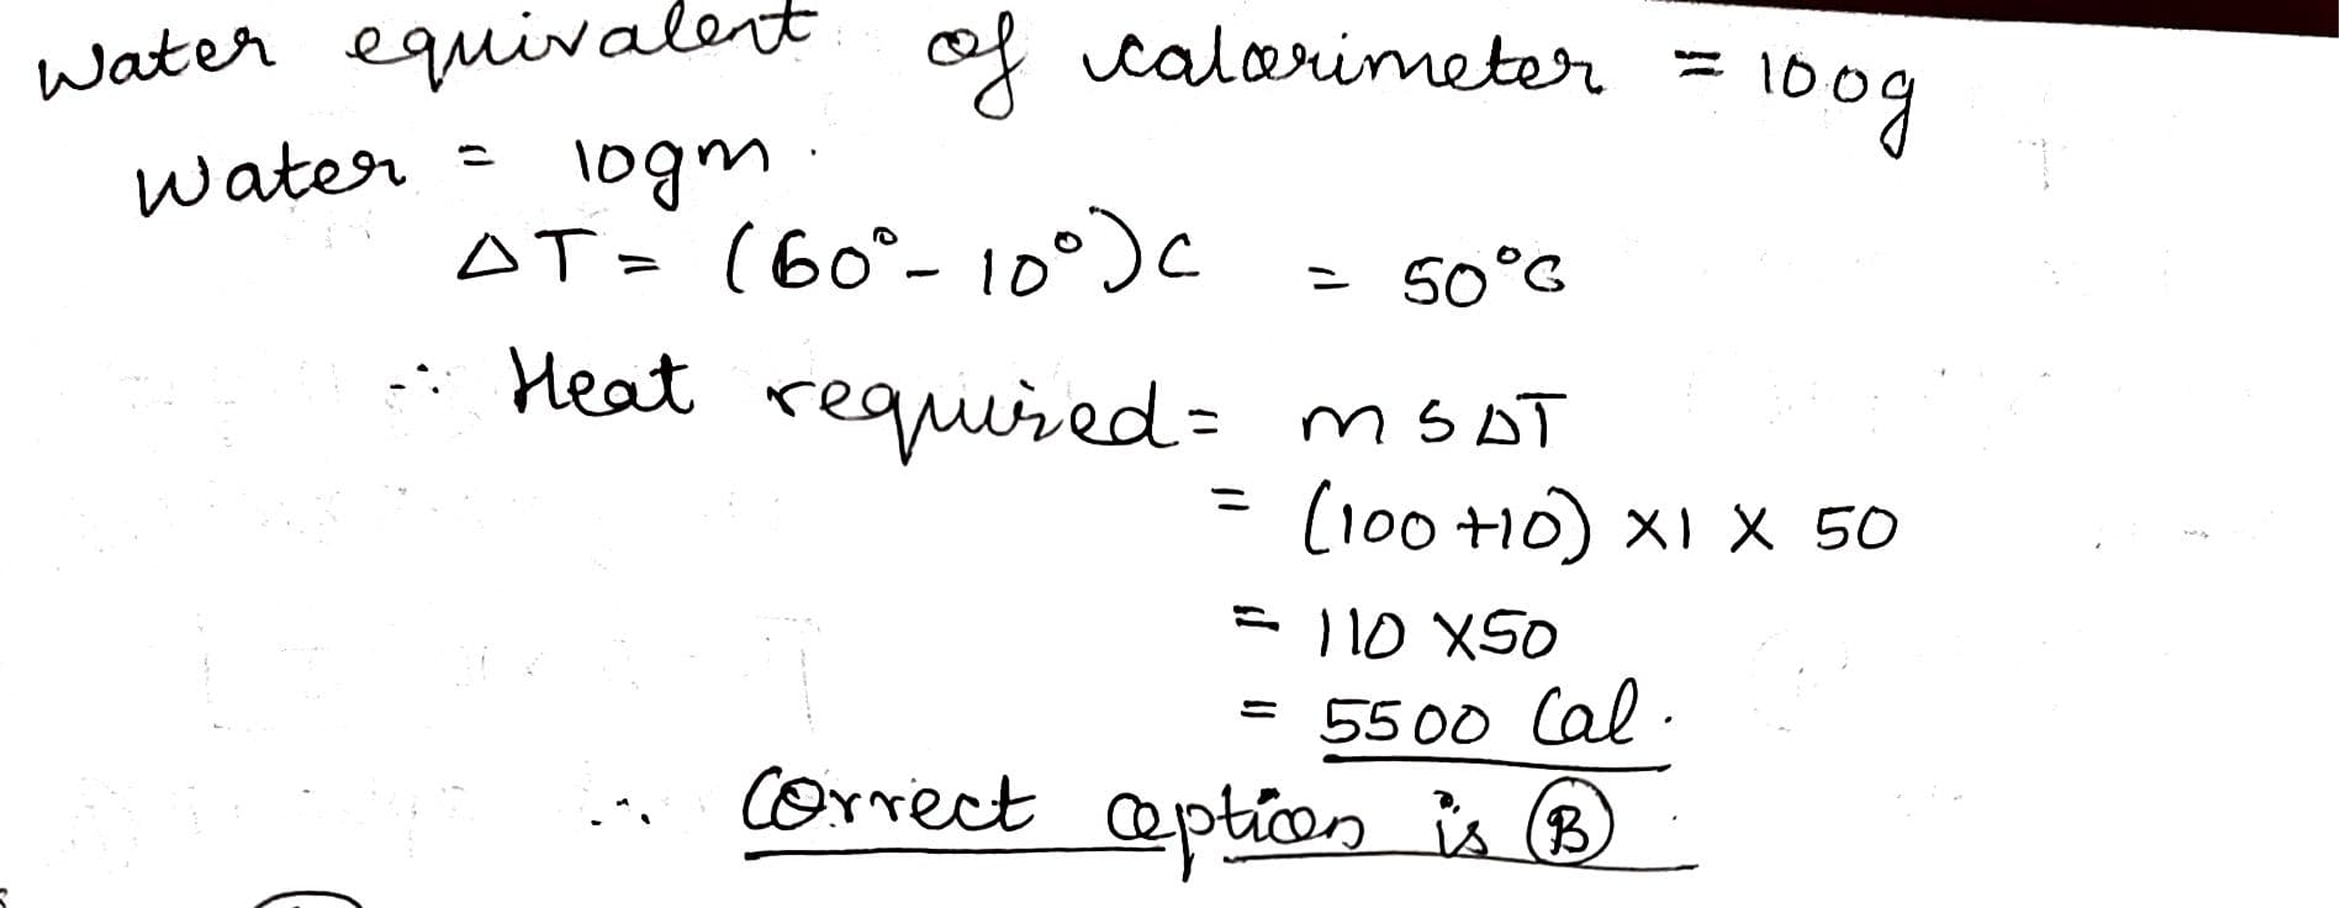 Water equivalent of calorimeter = 100g
Water = 10gm.
ΔT = (60° - 10°)C = 50°C
∴ Heat required = m s ΔT
= (100 +10) x1 x 50
= 110 x50
= 5500 Cal.
∴ Correct option is B